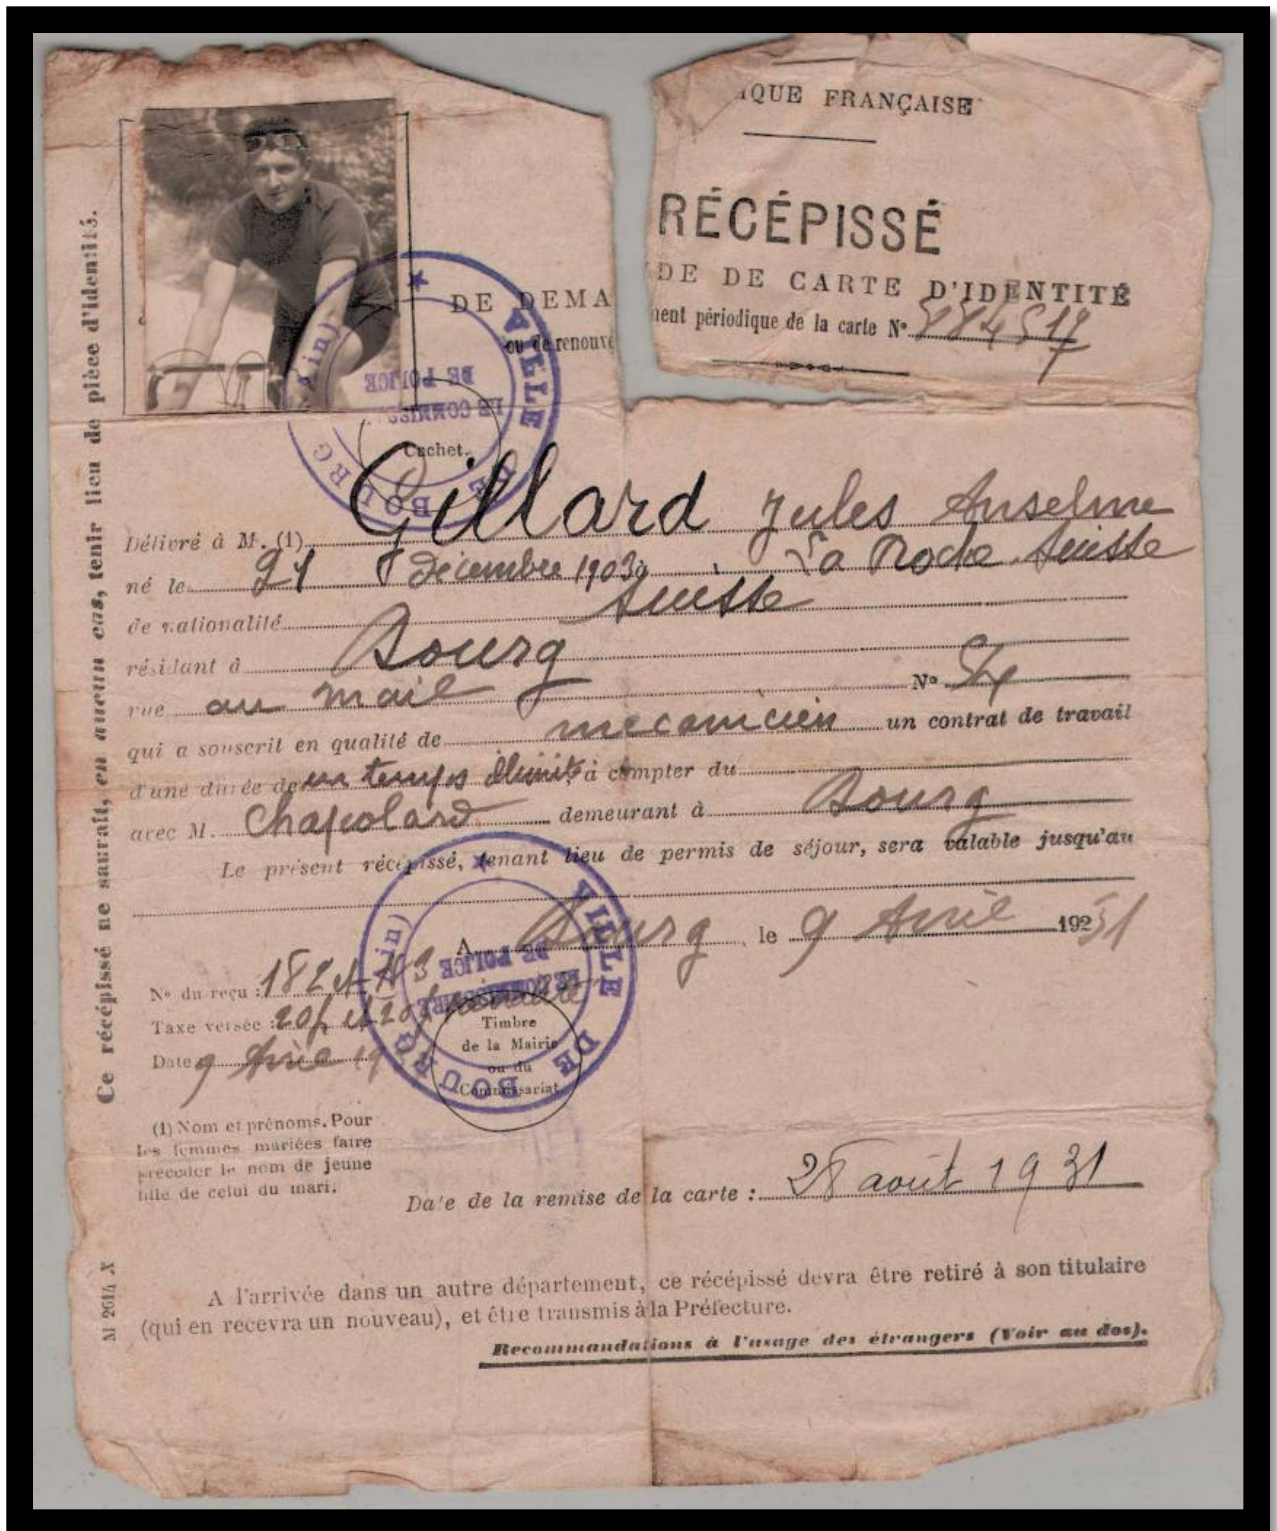 IQUE FRANÇAISE
RÉCÉPISSÉ
DE DEMA DE DE CARTE D'IDENTITÉ
ou de renouve ment périodique de la carte N° 884517
Cachet
VILLE DE BOURG (Ain)
LE COMMISSAIRE
DE POLICE
Délivré à M. (1) Gillard Jules Anselme
né le 21 décembre 1903 à La Roche Suisse
de nationalité Suisse
résidant à Bourg
rue au mail N°
qui a souscrit en qualité de mécanicien un contrat de travail
d'une durée de un temps illimité à compter du
avec M. Chapolard demeurant à Bourg
Le présent récépissé, tenant lieu de permis de séjour, sera valable jusqu'au
A Bourg, le 9 Avril 1931
N° du reçu : 182
Taxe versée : 20f et 20f pénalité
Date 9 Avril 19
VILLE DE BOURG (Ain)
LE COMMISSAIRE
DE POLICE
Timbre
de la Mairie
ou du
Commissariat
(1) Nom et prénoms. Pour
les femmes mariées faire
précéder le nom de jeune
fille de celui du mari.
Date de la remise de la carte : 28 août 1931
A l'arrivée dans un autre département, ce récépissé devra être retiré à son titulaire
(qui en recevra un nouveau), et être transmis à la Préfecture.
Recommandations à l'usage des étrangers (Voir au dos).
Ce récépissé ne saurait, en aucun cas, tenir lieu de pièce d'identité.
M 2614 X